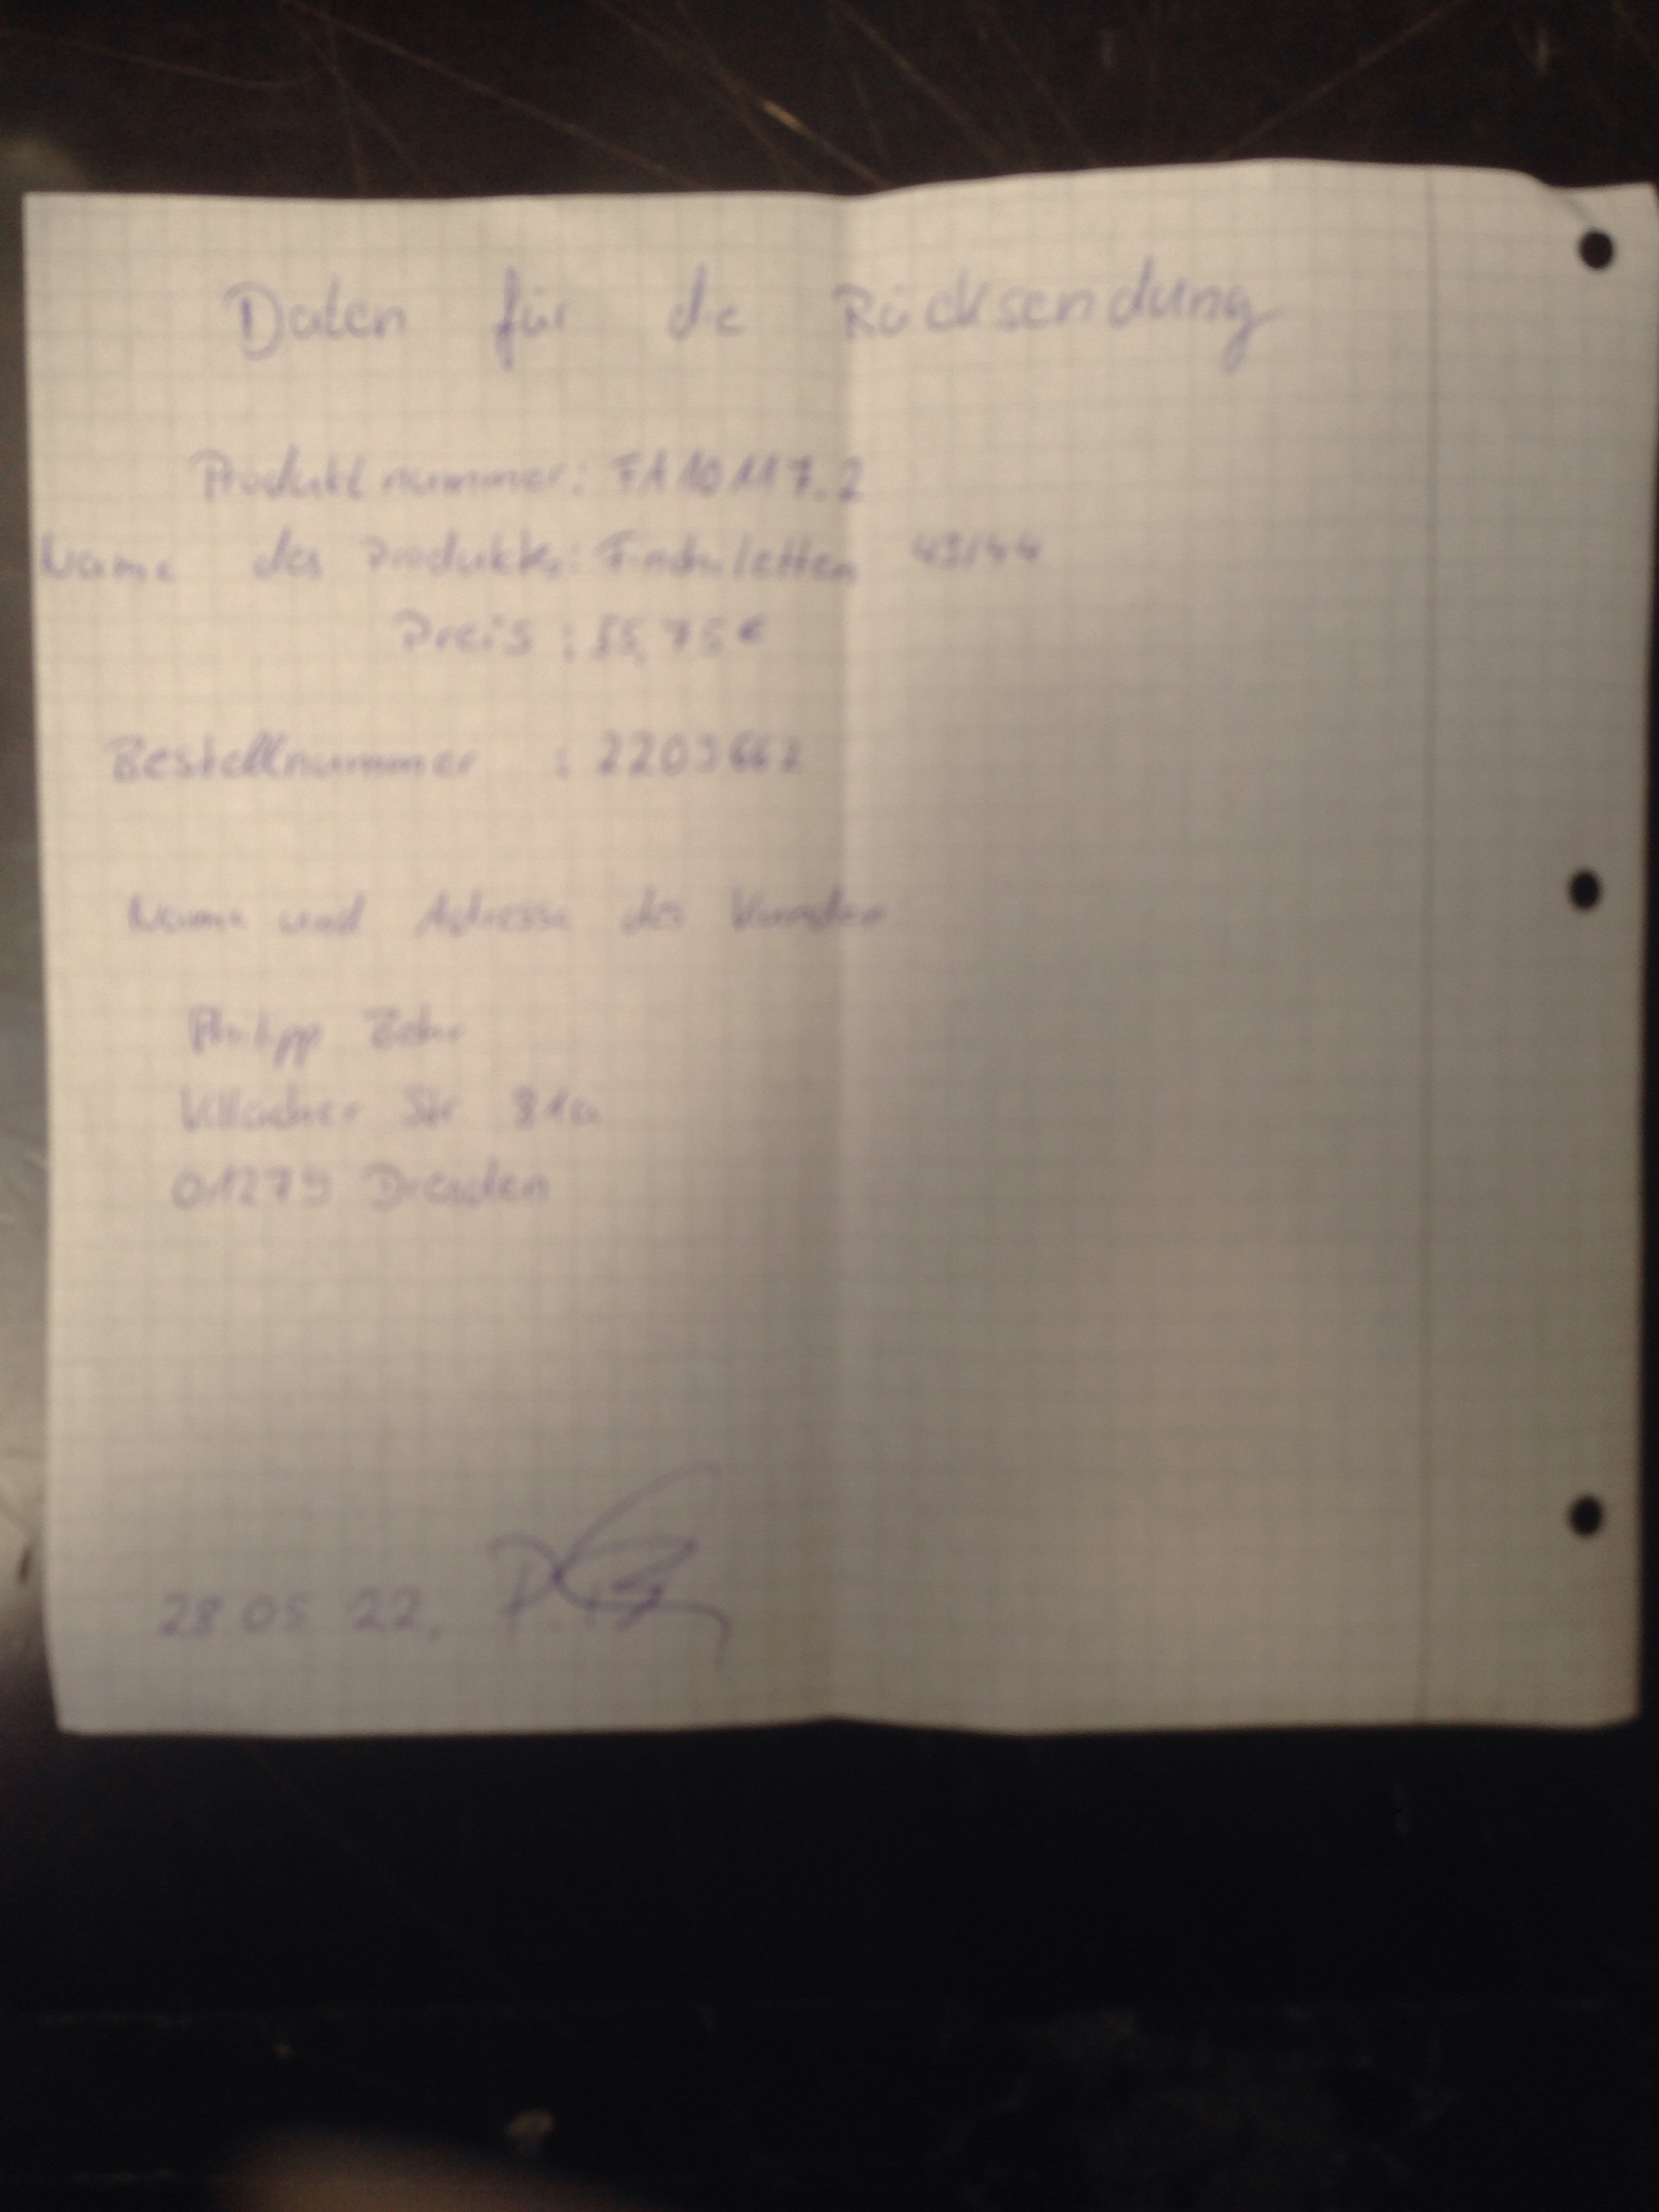 Daten für die Rücksendung
Produktnummer: FA10117.2
Name des Produktes: 43/44
Preis: 55,75€
Bestellnummer : 2209662
Name und Adresse des Kunden
Philipp
Villacher Str 81a
01279 Dresden
28.05.22.